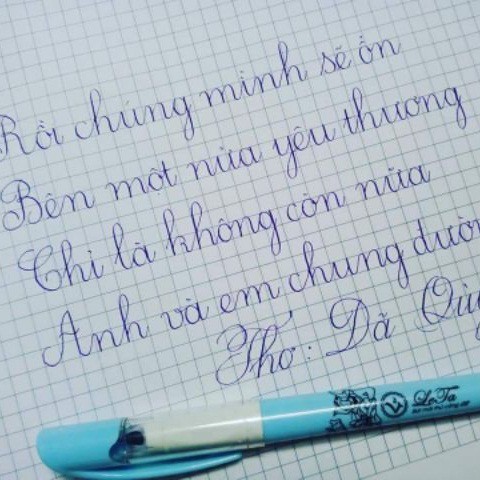 Rồi chúng mình sẽ ổn
Bên một nửa yêu thương
Chỉ là không còn nữa
Anh và em chung
Thơ: Dã
LeTa